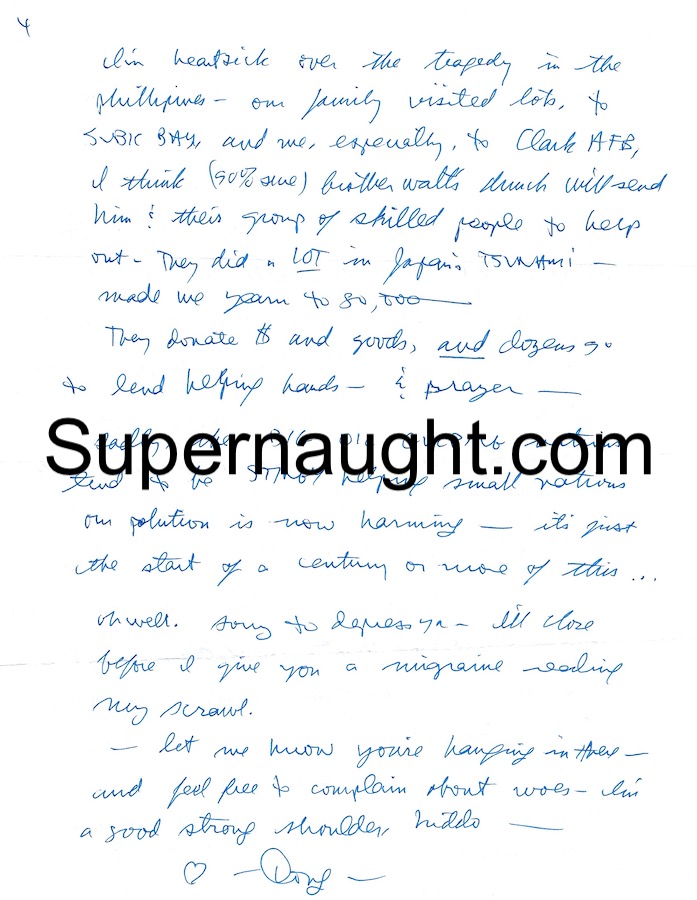 4
I'm heartsick over the tragedy in the
Phillipines - our family visited lots, to
SUBIC BAY, and me, especially, to Clark AFB,
I think (90% sure) brother walt's church will send
him & their group of skilled people to help
out - They did a LOT in Japan's TSUNAMI -
made me yearn to go,
They donate $ and goods, and dozens go
to lend helping hands - & prayer -
Supernaught.com
tend to be helping small nations
our polution is now harming - it's just
the start of a century or more of this ...
oh well. sorry to depress ya - I'll close
before I give you a migraine reading
my scrawl.
- let me know you're hanging in there -
and feel free to complain about woes - I'm
a good strong shoulder, kiddo -
♡ - Doug -